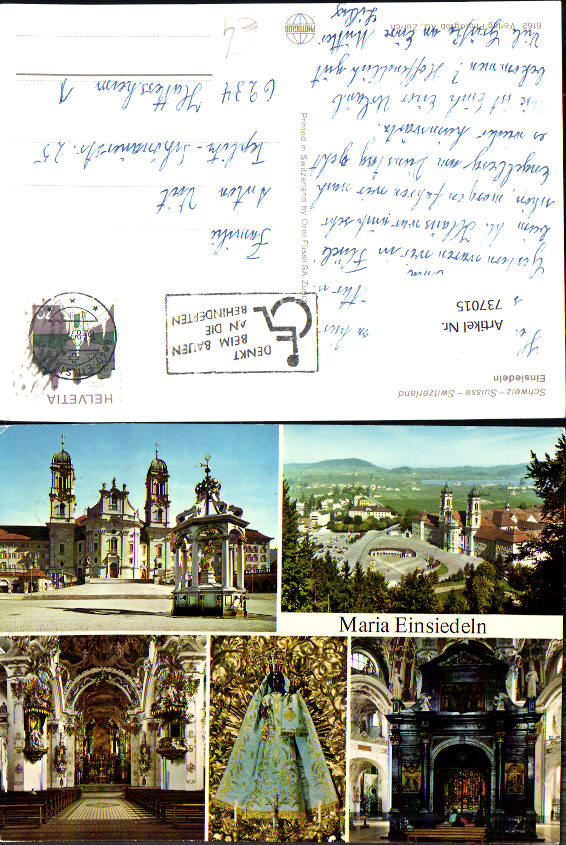 Schweiz – Suisse – Switzerland
Einsiedeln
Artikel Nr.
737015
Gestern waren wir in Flüeli
beim hl. Klaus war auch sehr
schön, morgen fahren wir nach
Engelberg am Dienstag geht
es wieder heimwärts.
Wie ist Euch Euer Urlaub
bekommen? Hoffentlich gut
Viele Grüße an Eure Mutter
HELVETIA
DENKT
BEIM BAUEN
AN DIE
BEHINDERTEN
Familie
Anton Veit
Teplitz-Schönauerstr. 25
6234 Hattersheim 1
Printed in Switzerland by Orell Füssli SA, Zürich
PHOTOGLOB
6162 Verlag Photoglob AG, Zürich
Maria Einsiedeln